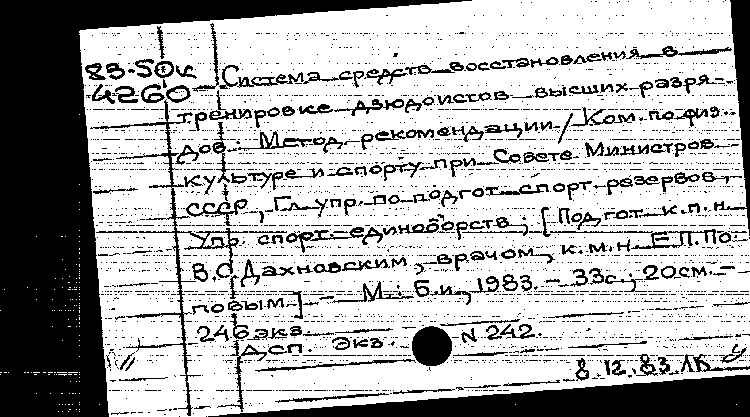 83-50к
4260
Система средств восстановления в
тренировке дзюдоистов высших разря-
дов: Метод. рекомендации / Ком. по физ.
культуре и спорту при Совете Министров
СССР, Гл. упр. по подгот. спорт. резервов,
Упр. спорт. единоборств; [Подгот. к.п.н.
В.С. Дахновским, врачом, к.м.н. Е.П. По-
повым]. - М.: Б.и., 1983. - 33с.; 20см. -
246 экз.
ДСП. Экз. N 242.
8.12.83 ЛК